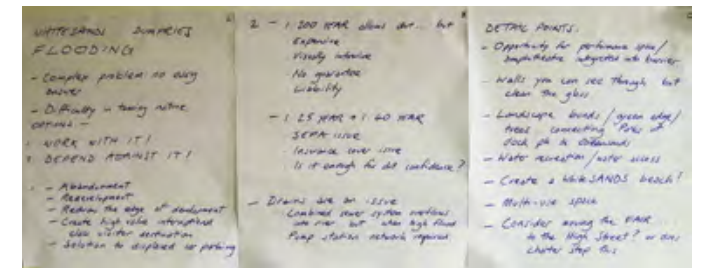 WHITESANDS DUMFRIES
FLOODING
- Complex problem no easy
answer
- Difficulty in taming nature
options -
1 WORK WITH IT!
2 DEFEND AGAINST IT!
1 - Abandonment
- Redevelopment
- Redraw the edge of development
- Create high value
visitor destination
- Solution to displaced car parking
2 - 1:200 YEAR allows but... but
Expensive
Visually intrusive
No guarantee
Liability
- 1:25 YEAR + 1:40 YEAR
SEPA issue
Insurance cover issue
Is it enough for confidence?
- Drains are an issue
Combined sewer system overflows
into river but when high flood
Pump station network required
DETAIL POINTS:
- Opportunity for performance space/
amphitheatre integrated into barrier
- Walls you can see through but
clean the glass
- Landscape bunds/green edge/
trees connecting
dock pk to
- Water recreation/water access
- Create a WhiteSANDS beach!
- Multi-use space
- Consider moving the FAIR
to the High Street? or does
charter stop this